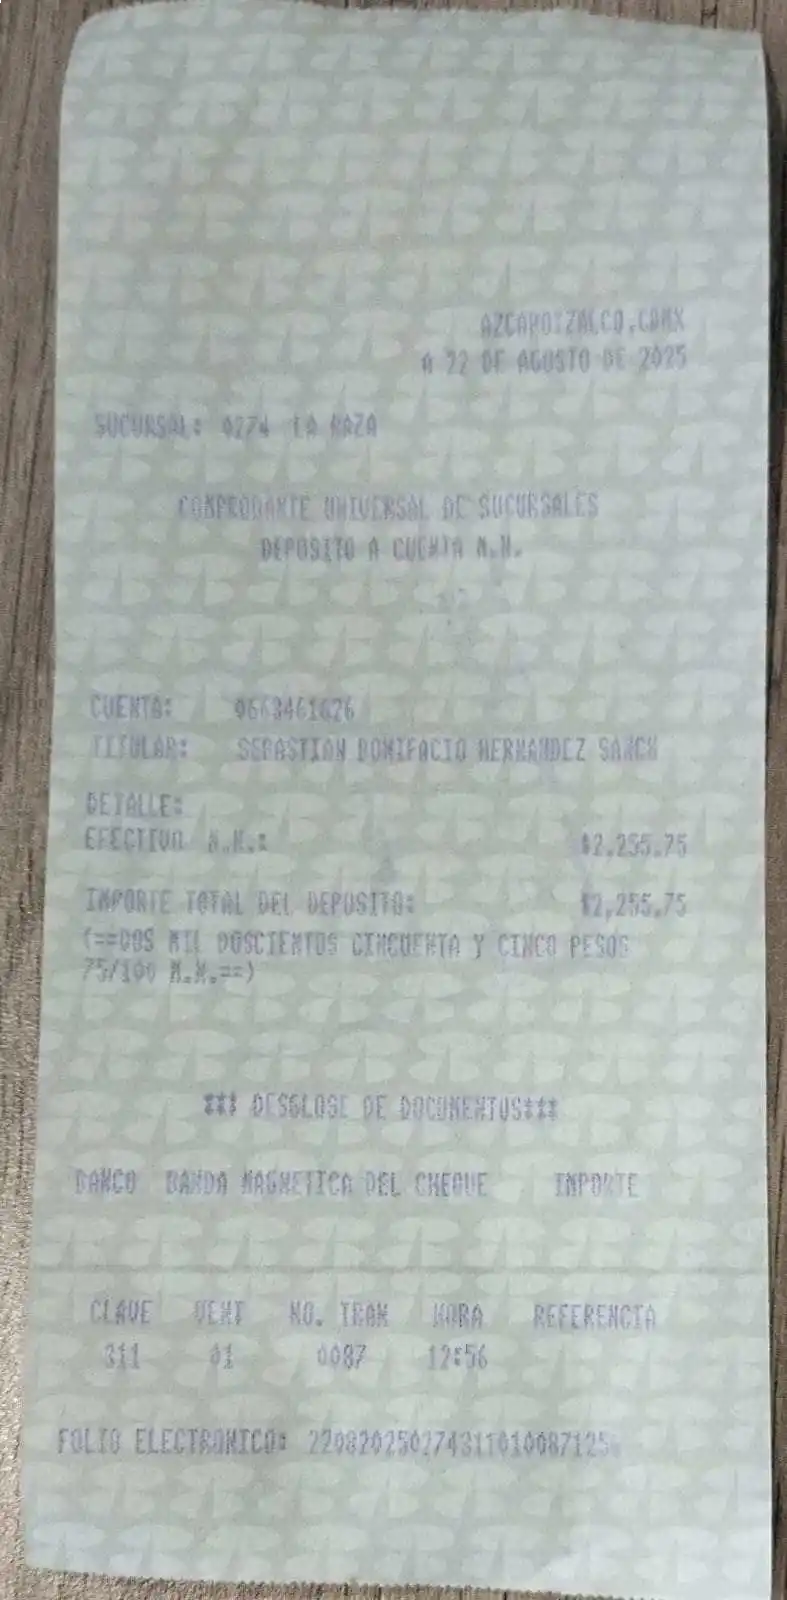 AZCAPOTZALCO,CDMX
A 22 DE AGOSTO DE 2025
SUCURSAL: 0274 LA RAZA
COMPROBANTE UNIVERSAL DE SUCURSALES
DEPOSITO A CUENTA M.N.
CUENTA:
TITULAR: SEBASTIAN BONIFACIO HERNANDEZ SANCH
DETALLE:
EFECTIVO M.N.: $2,255.75
IMPORTE TOTAL DEL DEPOSITO: $2,255.75
(==DOS MIL DOSCIENTOS CINCUENTA Y CINCO PESOS
75/100 M.N.==)
*** DESGLOSE DE DOCUMENTOS***
BANCO BANDA MAGNETICA DEL CHEQUE IMPORTE
CLAVE VENT NO. TRAN HORA REFERENCIA
311 01 0087 12:56
FOLIO ELECTRONICO: